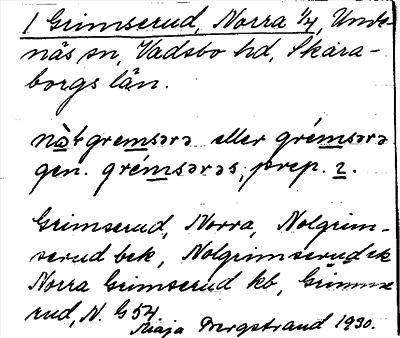 1 Grimserud, Norra 1/4, Unde-
näs sn, Vadsbo hd, Skara-
borgs län.
nòᶉgremsərə eller grémsərə
gen. grémsərəs, prep. 2.
Grimserud, Norra, Nolgrim-
serud bek, Nolgrimserud ek
Norra Grimserud kb, Grimse
rud, N. G 54.
Maja Bergstrand 1930.